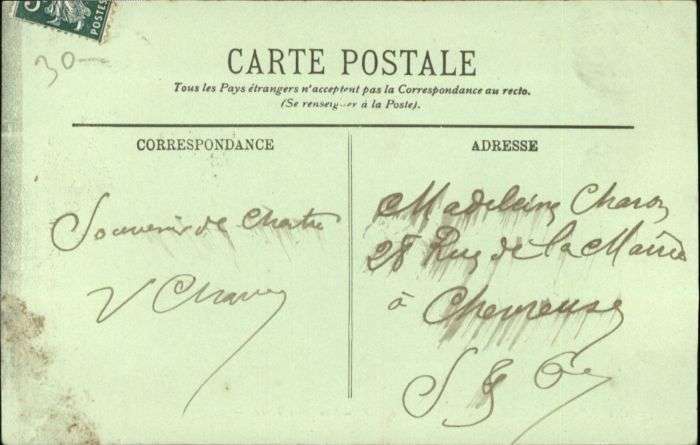 POSTES
30
CARTE POSTALE
Tous les Pays étrangers n'acceptent pas la Correspondance au recto.
(Se renseigner à la Poste).
CORRESPONDANCE
Souvenir de Chartres
V Charon
ADRESSE
Madeleine Charon
28 Rue de la Mairie
à Chevreuse
S & O